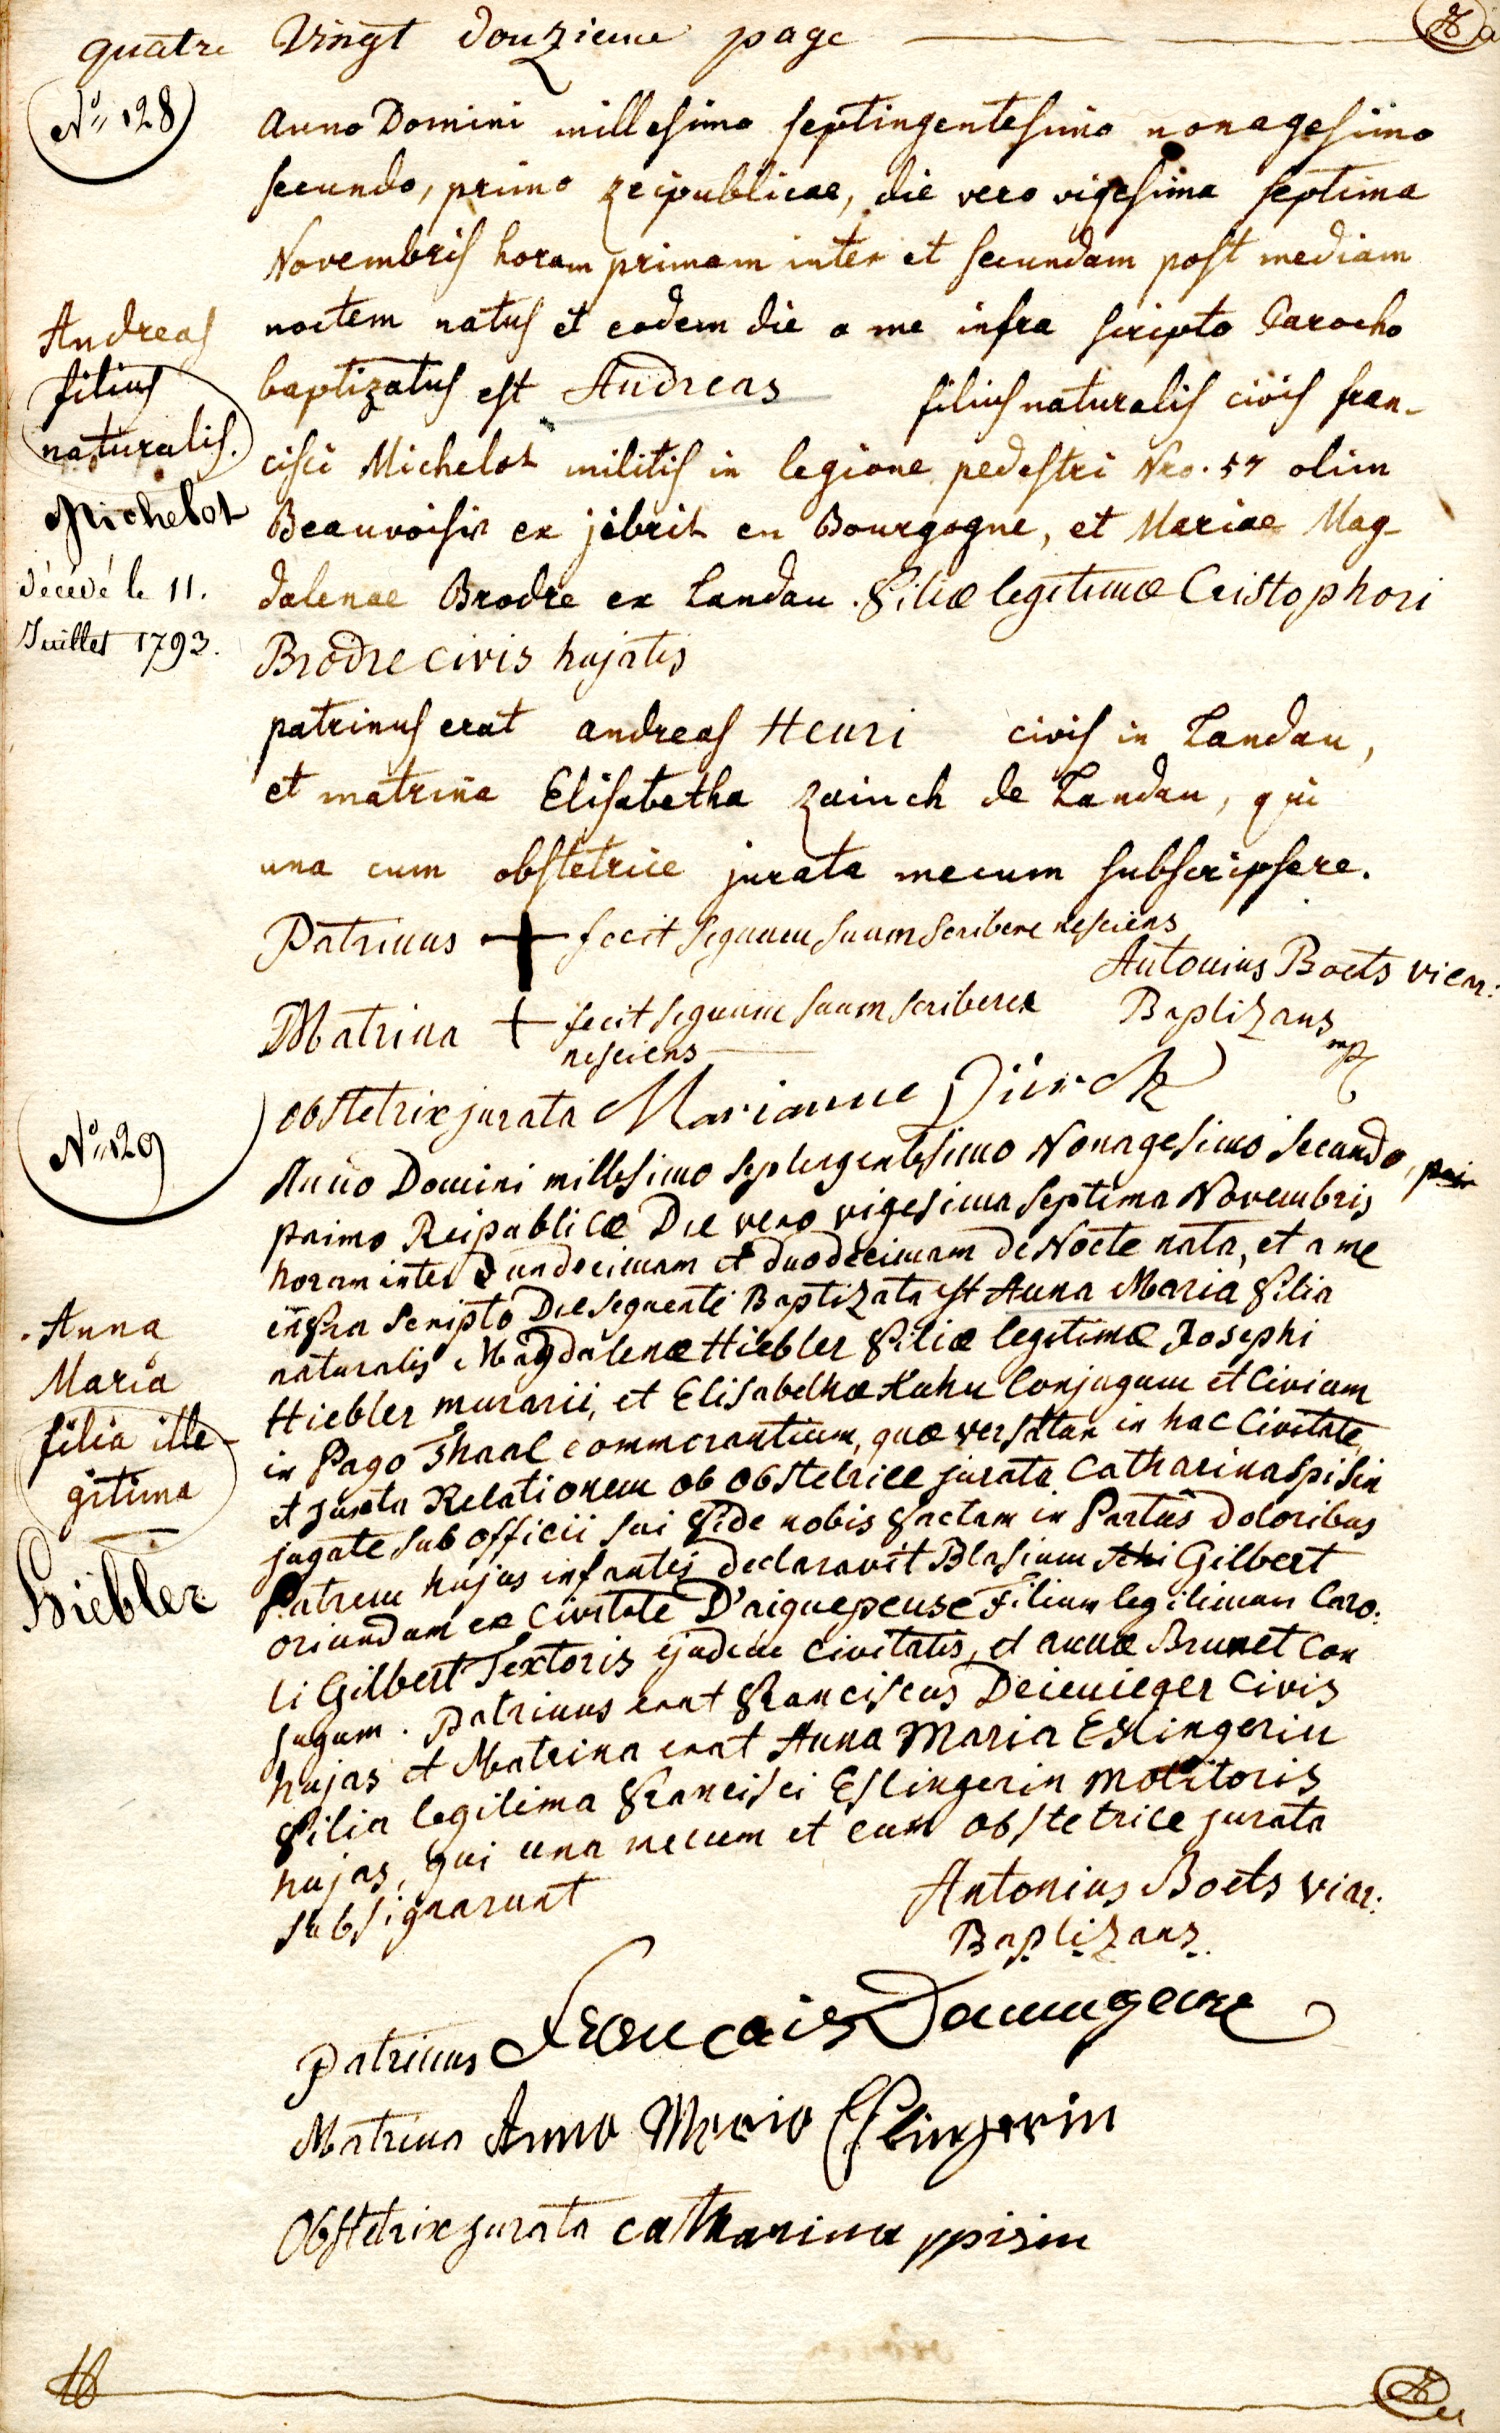 quatre Vingt douzieme page
No 128
Anno Domini millesimo septingentesimo nonagesimo
secundo, primo reipublicae, die vero vigesima septima
Novembris horam primam inter et secundam post mediam
noctem natus et eodem die a me infra scripto Parocho
baptizatus est Andreas filius naturalis civis fran-
cisci Michelot militis in legione pedestri Nro. 57 olim
Beauvoisis ex jebrit en Bourgogne, et Mariae Mag-
dalenae Brodre ex Landau. Filiæ legitimæ Cristophori
Brodre civis hujatis
Andreas
filius
naturalis.
Michelot
décédé le 11.
Juillet 1793.
patrinus erat andreas Henri civis in Landau,
et matrina Elisabetha zainch de Landau, qui
una cum obstetrice jurata mecum subscripsere.
Patrinus + fecit signum suum scribere nesciens
Antonius Boets vicar:
Baptizans
Matrina + fecit signum suum scribere
nesciens
obstetrix jurata Marianne Dürck
No 129
Anno Domini millesimo septingentesimo Nonagesimo secundo,
primo Reipublicæ Die vero vigesima septima Novembris
horam inter undecimam et duodecimam de Nocte nata, et a me
infra scripto Die sequenti Baptizata est Anna Maria Filia
naturalis Magdalenæ Hiebler Filiæ legitimæ Josephi
Hiebler murarii, et Elisabethæ Kuhn Conjugum et Civium
in Pago Thaal commorantium, quæ versatur in hac Civitate,
et juxta Relationem ab obstetrice jurata Catharina Spisin
jugate sub officii sui Fide nobis Factam in Partûs Doloribus
Patrem hujus infantis Declaravit Blasium Gilbert
oriundum ex Civitate D'aigueperse Filium legitimum Caro:
li Gilbert Textoris ejusdem Civitatis, et annæ Brunet Con
jugum. Patrinus erat Franciscus Deiemieger Civis
hujas et Matrina erat Anna Maria Eslingerin
Filia legitima Francisci Eslingerin Molitoris
hujas, qui una mecum et cum obstetrice jurata
subsignarunt
Anna
Maria
filia ille-
gitima
Hiebler
Antonius Boets vicar:
Baptizans.
Patrinus Francais
Matrina Anna Maria Eslingerin
Obstetrix jurata catharina spisin